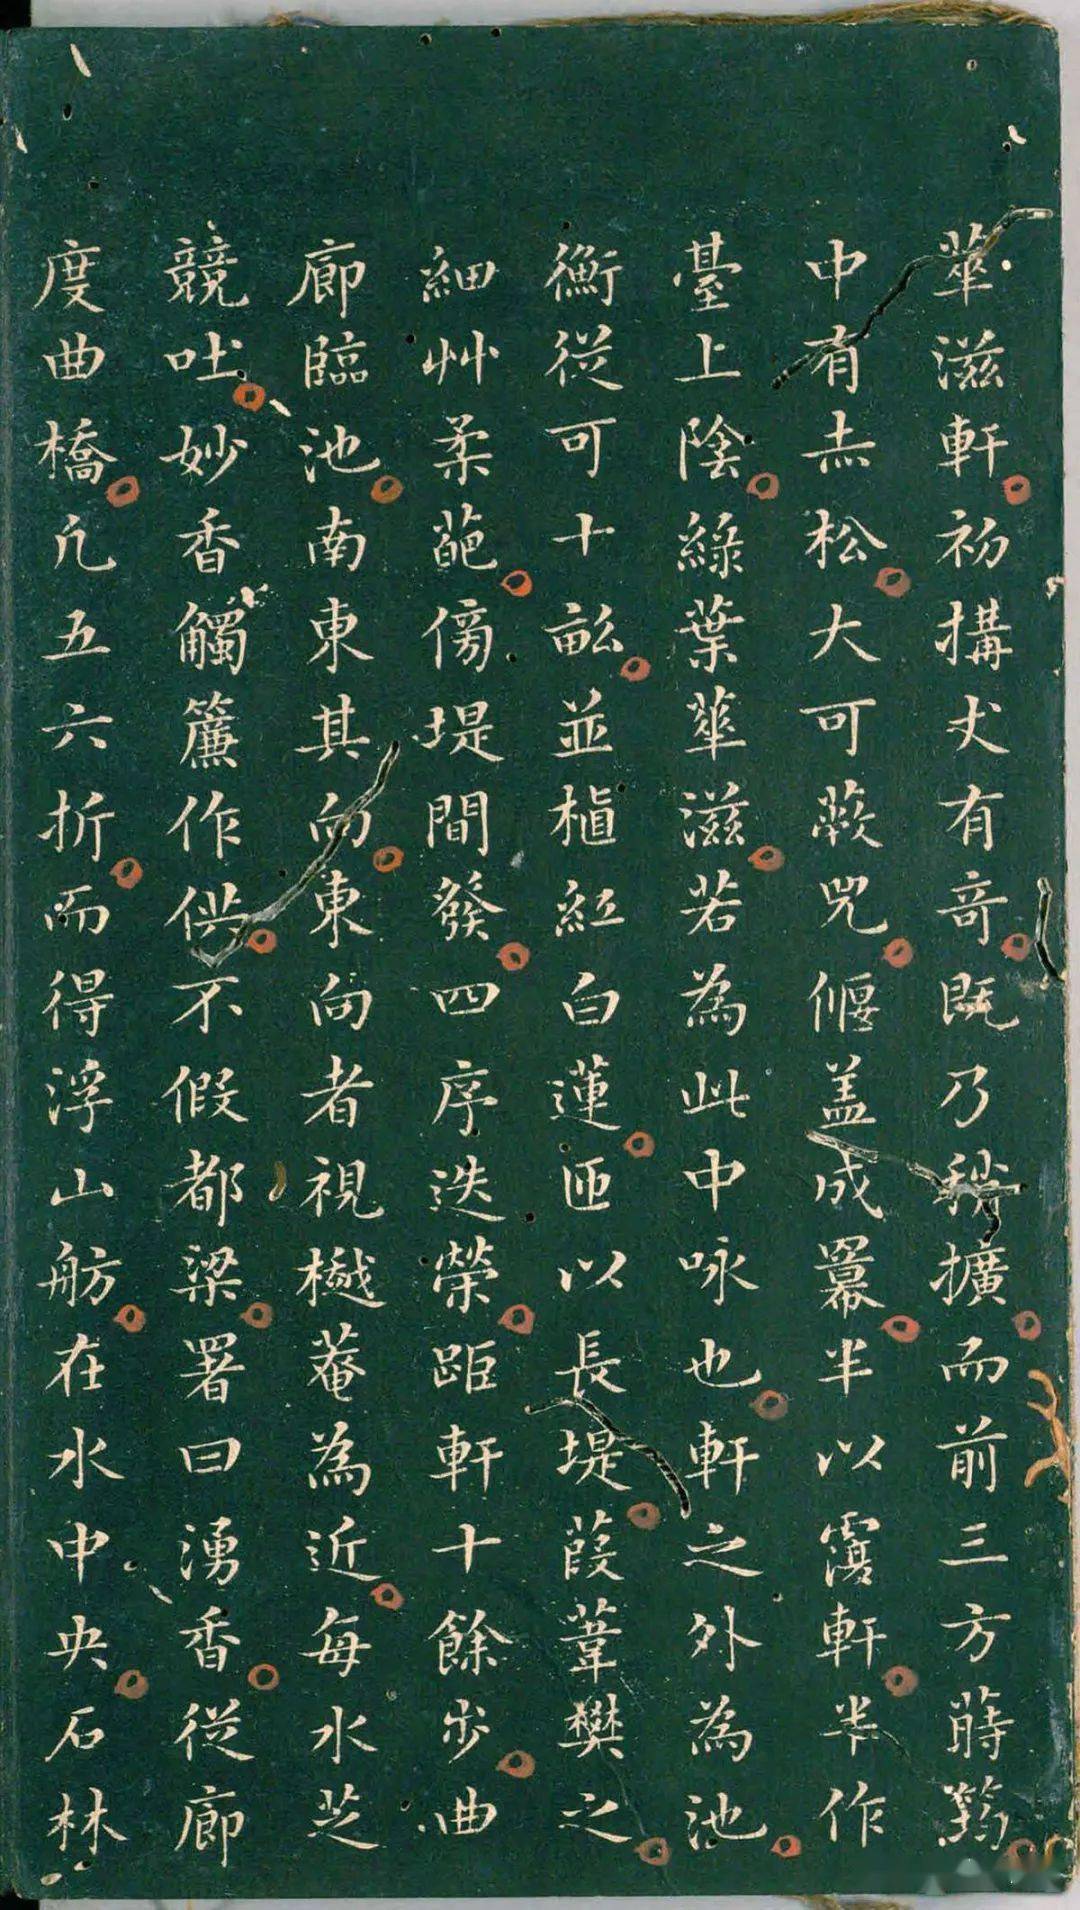 華滋軒初搆丈有竒既乃稍擴而前三方蒔篘
中有赤松大可蔽兕偃盖成羃半以覆軒半作
臺上陰綠葉華滋若為此中咏也軒之外為池
衡從可十畝並植紅白蓮匝以長堤葭葦樊之
細艸柔葩傍堤間發四序迭榮距軒十餘步曲
廊臨池南東其向東向者視樾菴為近每水芝
競吐妙香觸簾作供不假都梁署曰湧香從廊
度曲橋凢五六折而得浮山舫在水中央石林